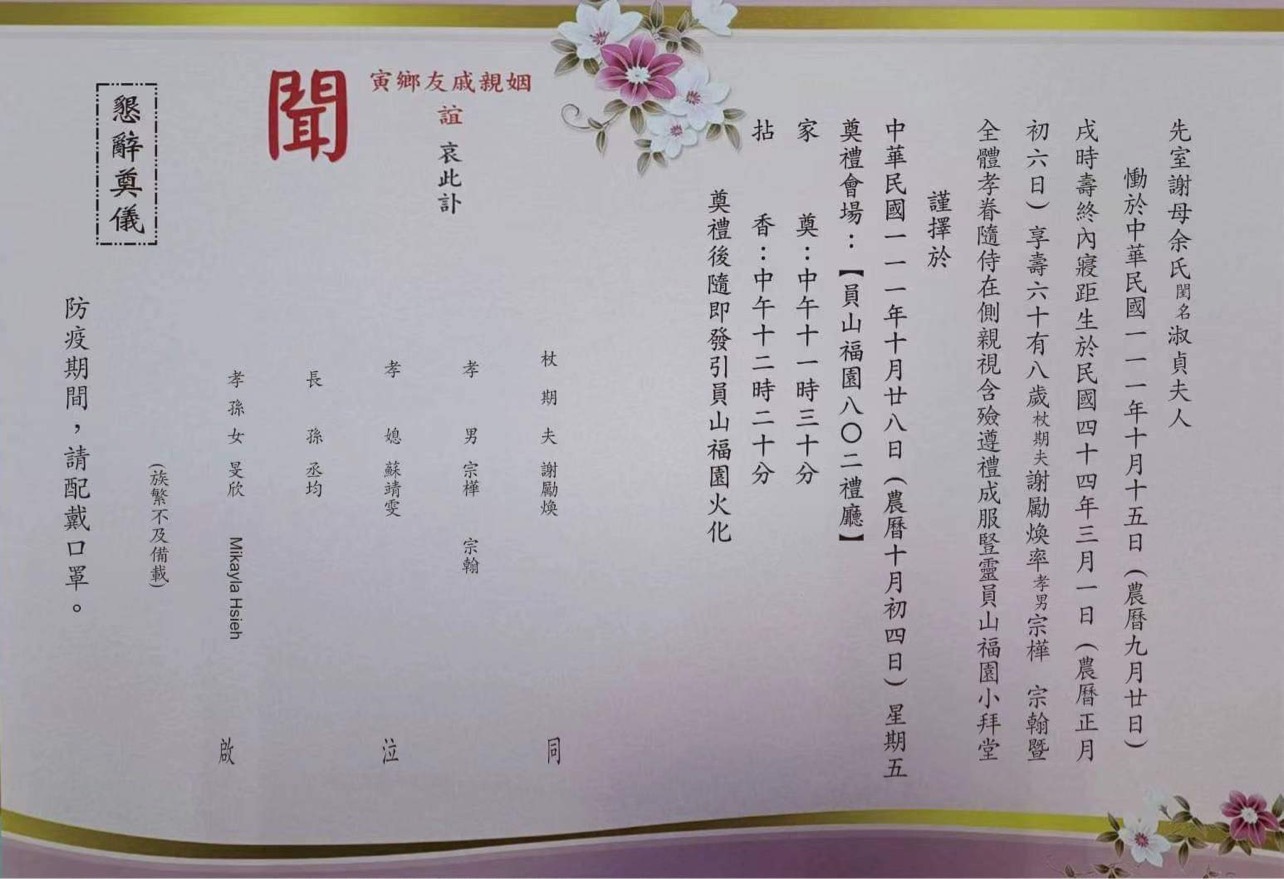 先室謝母余氏閨名淑貞夫人
慟於中華民國一一一年十月十五日(農曆九月廿日)
戌時壽終內寢距生於民國四十四年三月一日(農曆正月
初六日)享壽六十有八歲杖期夫謝勵煥率孝男宗樺 宗翰暨
全體孝眷隨侍在側親視含殮遵禮成服豎靈員山福園小拜堂
謹擇於
中華民國一一一年十月廿八日(農曆十月初四日)星期五
奠禮會場:【員山福園八〇二禮廳】
家 奠:中午十一時三十分
拈 香:中午十二時二十分
奠禮後隨即發引員山福園火化
姻親戚友鄉寅
誼 哀此訃
聞
杖期夫 謝勵煥 同
孝男 宗樺 宗翰
孝媳 蘇靖雯 泣
長孫 丞均
孝孫女 旻欣 Mikayla Hsieh 啟
(族繁不及備載)
懇辭奠儀
防疫期間,請配戴口罩。